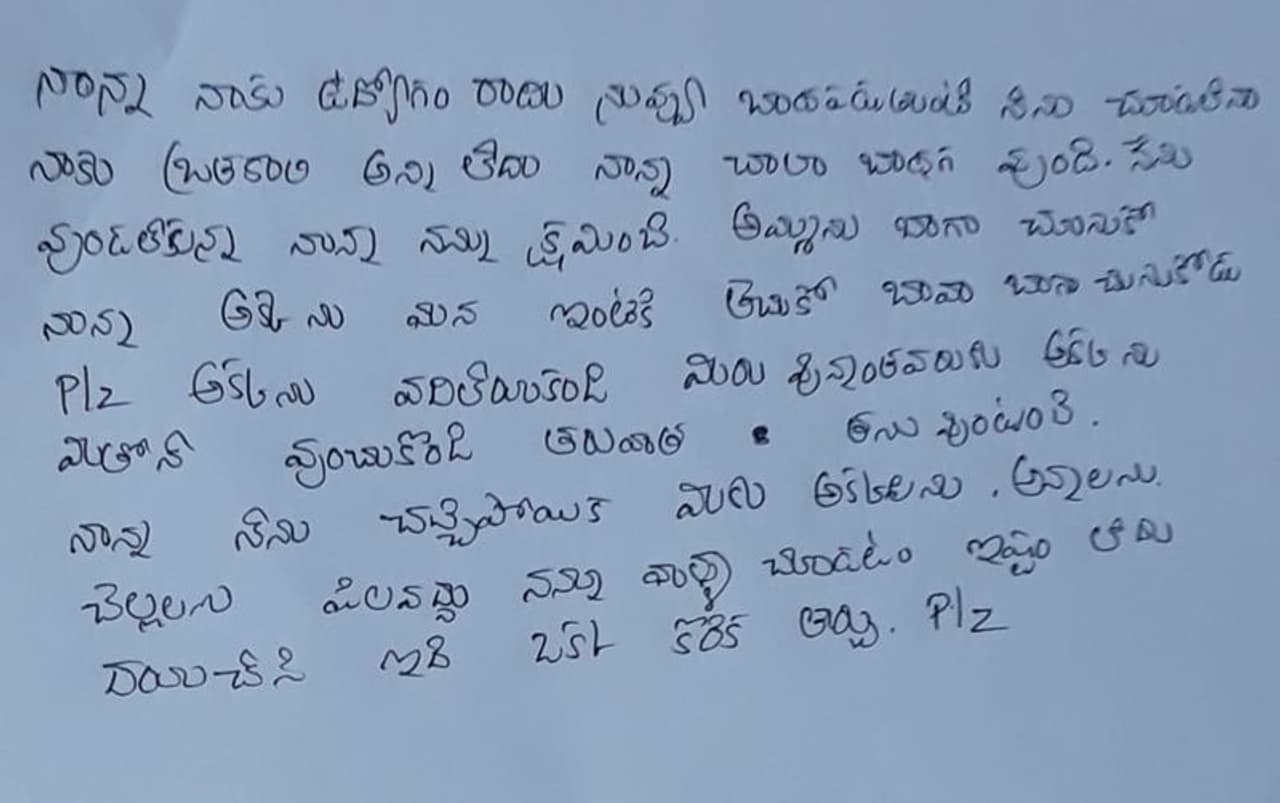 నాన్న నాకు ఉద్యోగం రాదు నువ్వు బాధపడుతుంటే నేను చూడలేను
నాకు బ్రతకాలి అని లేదు నాన్న చాలా బాధగ వుంది. నేను
వుండలేకున్న నాన్న నన్ను క్షమించి. అమ్మను బాగా చూసుకో
నాన్న అక్కను మన ఇంటికి తెచుకో బావా బాగా చుసుకోడు
Plz అక్కను వదిలేయకండి మీరు వున్నంతవరుకు అక్కను
మీతోనే వుంచుకొండి తరువాత తను వుంటుంది.
నాన్న నేను చచ్చిపోయిక మీరు అక్కలను. అన్నలను.
చెల్లలను పిలవద్దు నన్ను వాళ్ళు చూడటం ఇష్టం లేదు
దయచేసి ఇది ఒక్క కోరిక తిర్చు. Plz